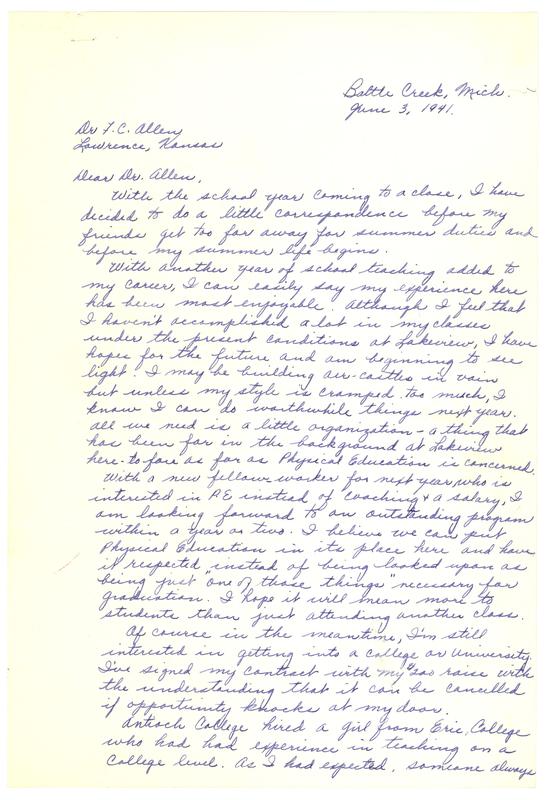 Battle Creek, Mich.
June 3, 1941.
Dr. F. C. Allen
Lawrence, Kansas
Dear Dr. Allen,
With the school year coming to a close, I have
decided to do a little correspondence before my
friends get too far away for summer duties and
before my summer life begins.
With another year of school teaching added to
my career, I can easily say my experience here
has been most enjoyable. Although I feel that
I haven't accomplished a lot in my classes
under the present conditions at Lakeview, I have
hopes for the future and am beginning to see
light. I may be building air-castles in vain
but unless my style is cramped too much, I
know I can do worthwhile things next year.
All we need is a little organization - a thing that
has been far in the background at Lakeview
here-to-fore as far as Physical Education is concerned.
With a new fellow-worker for next year, who is
interested in P.E. instead of coaching & a salary, I
am looking forward to an outstanding program
within a year or two. I believe we can put
Physical Education in its place here and have
it respected, instead of being looked upon as
being just "one of those things" necessary for
graduation. I hope it will mean more to
students than just attending another class.
Of course in the meantime, I'm still
interested in getting into a college or University.
I've signed my contract with my $200 raise with
the understanding that it can be cancelled
if opportunity knocks at my door.
Antioch College hired a girl from Erie, College
who had had experience in teaching on a
College level. As I had expected, someone always